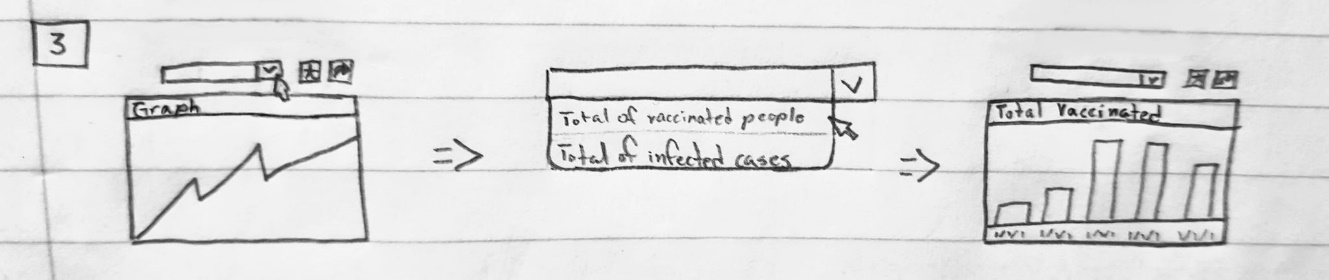 3
Graph
Total of vaccinated people
Total of infected cases
Total Vaccinated